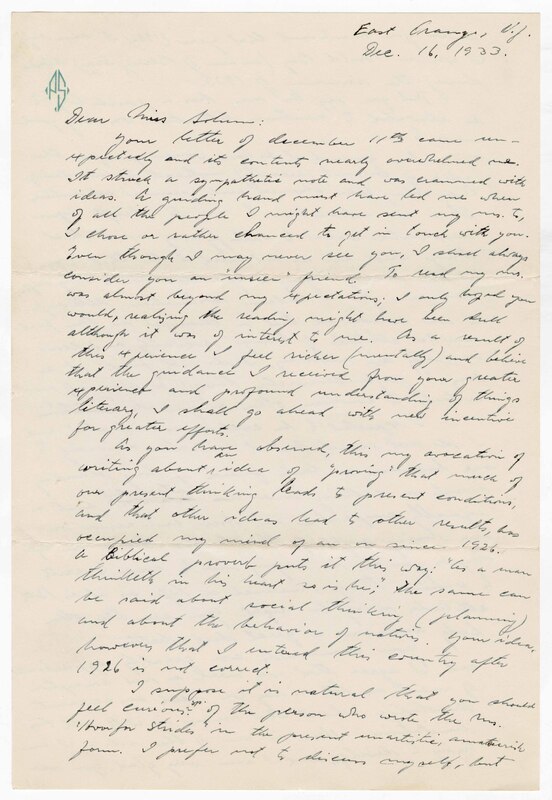 East Orange, N.J.
Dec. 16, 1933.
PS
Dear Miss
Your letter of december 11th came un-
expectedly and its contents nearly overwhelmed me.
It struck a sympathetic note and was crammed with
ideas. A guiding hand must have led me when
of all the people I might have sent my ms. to,
I chose or rather chanced to get in touch with you.
Even though I may never see you, I shall always
consider you an "unseen" friend. To read my ms.
was almost beyond my expectations; I only hoped you
would, realizing the reading might have been dull
although it was of interest to me. As a result of
this experience I feel richer (mentally) and believe
that the guidance I received from your greater
experience and profound understanding of things
literary, I shall go ahead with new incentive
for greater efforts.
As you have observed, this my avocation of
writing about an idea of "proving" that much of
our present thinking leads to present conditions,
and that other ideas lead to other results, has
occupied my mind off an on since 1926.
A Biblical proverb puts it this way: "As a man
thinketh in his heart so is he;" The same can
be said about social thinking (planning)
and about the behavior of nations. Your idea,
however, that I entered this country after
1926 is not correct.
I suppose it is natural that you should
feel curious of the person who wrote the ms.
Strides" in the present unartistic, amateurish
form. I prefer not to discuss myself, but